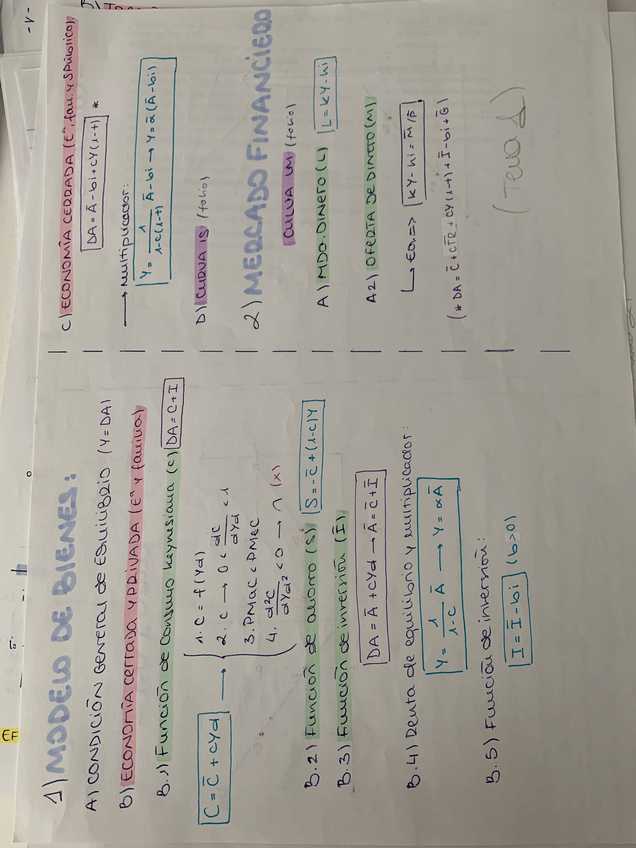 1) MODELO DE BIENES:
A) CONDICIÓN GENERAL DE EQUILIBRIO (Y=DA)
B) ECONOMÍA CERRADA Y PRIVADA (Eª y familia)
B.1) Función de consumo keynesiana (C) DA=C+I
C = C̄ + cYd
1. C = f(Yd)
2. c → 0 < dC/dYd < 1
3. PMaC < PMeC
4. d²C/dYd² < 0 → ∩ (x)
B.2) Función de ahorro (S) S=-C̄+(1-c)Y
B.3) Función de inversión (Ī)
DA = Ā + cYd → Ā = C̄ + Ī
B.4) Renta de equilibrio y multiplicador:
Y = 1/1-c Ā → Y = αĀ
B.5) Función de inversión:
I = Ī - bi (b>0)
C) ECONOMÍA CERRADA (Eª, fam. y S.Público)
DA = Ā - bi + cY(1-t) *
→ Multiplicador:
Y = 1/1-c(1-t) Ā - bi → Y = α(Ā - bi)
D) CURVA IS (folio)
2) MERCADO FINANCIERO
CURVA LM (folio)
A) MDO. DINERO (L) L = kY - hi
A2) OFERTA DE DINERO (M)
↳ Eq. => kY - hi = M̄/P̄
(* DA = C̄ + cTR + cY(1-t) + Ī - bi + Ḡ)
(Tema 1)
EF